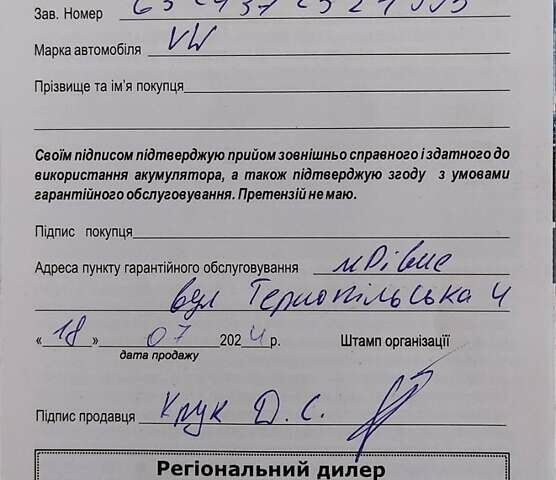 Зав. Номер
Марка автомобіля VW
Прізвище та ім'я покупця
Своїм підписом підтверджую прийом зовнішньо справного і здатного до
використання акумулятора, а також підтверджую згоду з умовами
гарантійного обслуговування. Претензій не маю.
Підпис покупця
Адреса пункту гарантійного обслуговування м Рівне
вул Тернопільська 4
« 18 » 07 2024 р. Штамп організації
дата продажу
Підпис продавця Крук Д. С.
Регіональний дилер